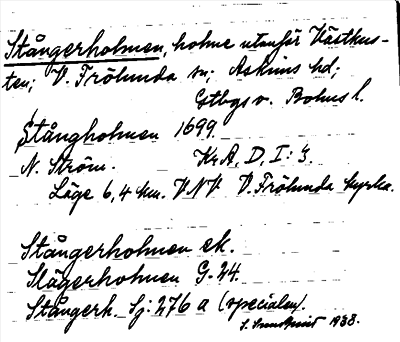 Stångerholmen, holme utanför Västkus-
ten; V. Frölunda sn; Askims hd;
Gtbgs o. Bohus l.
Stångholmen 1699.
N. Ström. KrA, D, I: 3.
Läge 6,4 km. VNV. V. Frölunda kyrka.
Stångerholmen ek.
Slägerholmen G. 24.
Stångerh. Sj: 276 a (specialen).
1938.